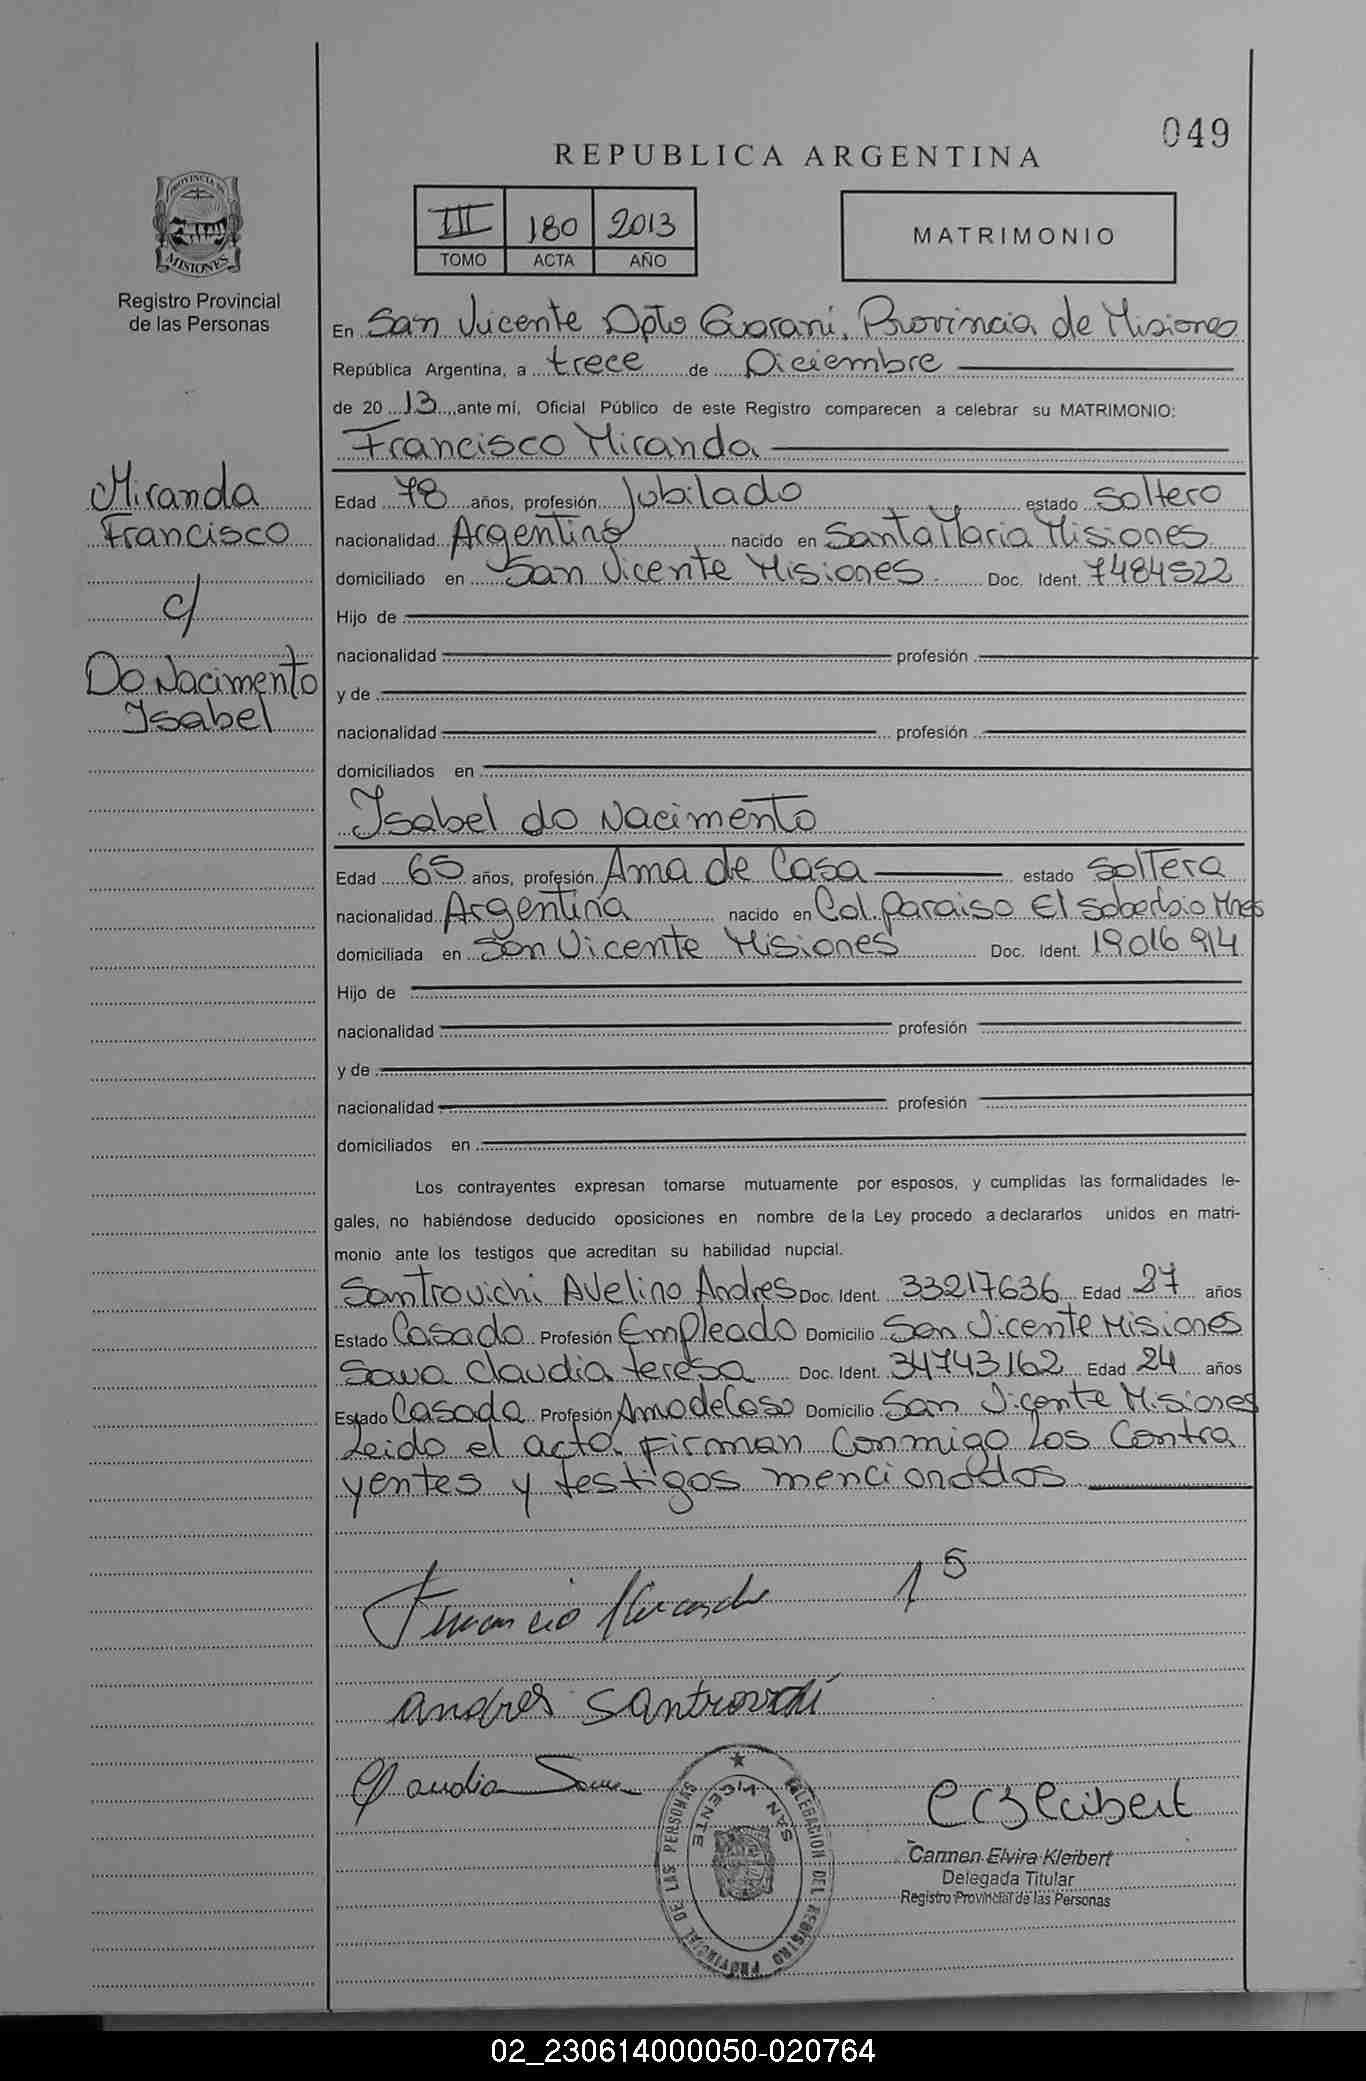 049
REPUBLICA ARGENTINA
III 180 2013
TOMO ACTA AÑO
MATRIMONIO
PROVINCIA DE
MISIONES
Registro Provincial
de las Personas
Miranda
Francisco
c/
Do Nacimento
Isabel
En San Vicente Dpto Guarani, Provincia de Misiones
República Argentina, a trece de Diciembre
de 20 13 ante mí, Oficial Público de este Registro comparecen a celebrar su MATRIMONIO:
Francisco Miranda
Edad 78 años, profesión Jubilado estado Soltero
nacionalidad Argentino nacido en Santa Maria Misiones
domiciliado en San Vicente Misiones Doc. Ident. 7484522
Hijo de
nacionalidad profesión
y de
nacionalidad profesión
domiciliados en
Isabel do Nacimento
Edad 65 años, profesión Ama de Casa estado Soltera
nacionalidad Argentina nacido en Col. Paraiso El Soberbio Mnes
domiciliada en San Vicente Misiones Doc. Ident. 19016914
Hijo de
nacionalidad profesión
y de
nacionalidad profesión
domiciliados en
Los contrayentes expresan tomarse mutuamente por esposos, y cumplidas las formalidades le-
gales, no habiéndose deducido oposiciones en nombre de la Ley procedo a declararlos unidos en matri-
monio ante los testigos que acreditan su habilidad nupcial.
Santrovichi Avelino Andres Doc. Ident. 33217636 Edad 27 años
Estado Casado Profesión Empleado Domicilio San Vicente Misiones
Sawa Claudia teresa Doc. Ident. 34743162 Edad 24 años
Estado Casada Profesión Ama de Casa Domicilio San Vicente Misiones
Leido el acta. Firman Conmigo Los Contra
yentes y testigos mencionados
Francisco Miranda 15
andres santrovichi
Claudia Sawa
DELEGACION DEL REGISTRO PROVINCIAL DE LAS PERSONAS
SAN VICENTE
CEKleibert
Carmen Elvira Kleibert
Delegada Titular
Registro Provincial de las Personas
02_230614000050-020764